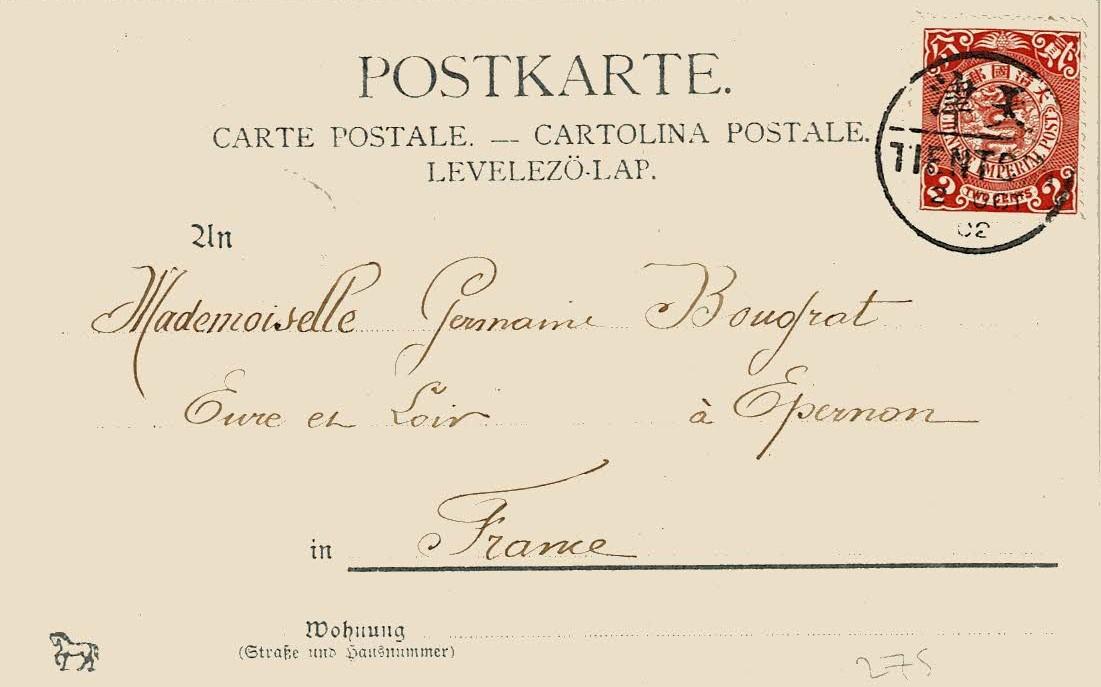 POSTKARTE.
CARTE POSTALE. — CARTOLINA POSTALE.
LEVELEZÖ-LAP.
大清國郵
CHINESE IMPERIAL POST
2 TWO CENTS 2
TIENTS
2 OCT
02
An
Mademoiselle Germaine Bougrat
Eure et Loir à Epernon
in France
Wohnung
(Straße und Hausnummer)
275